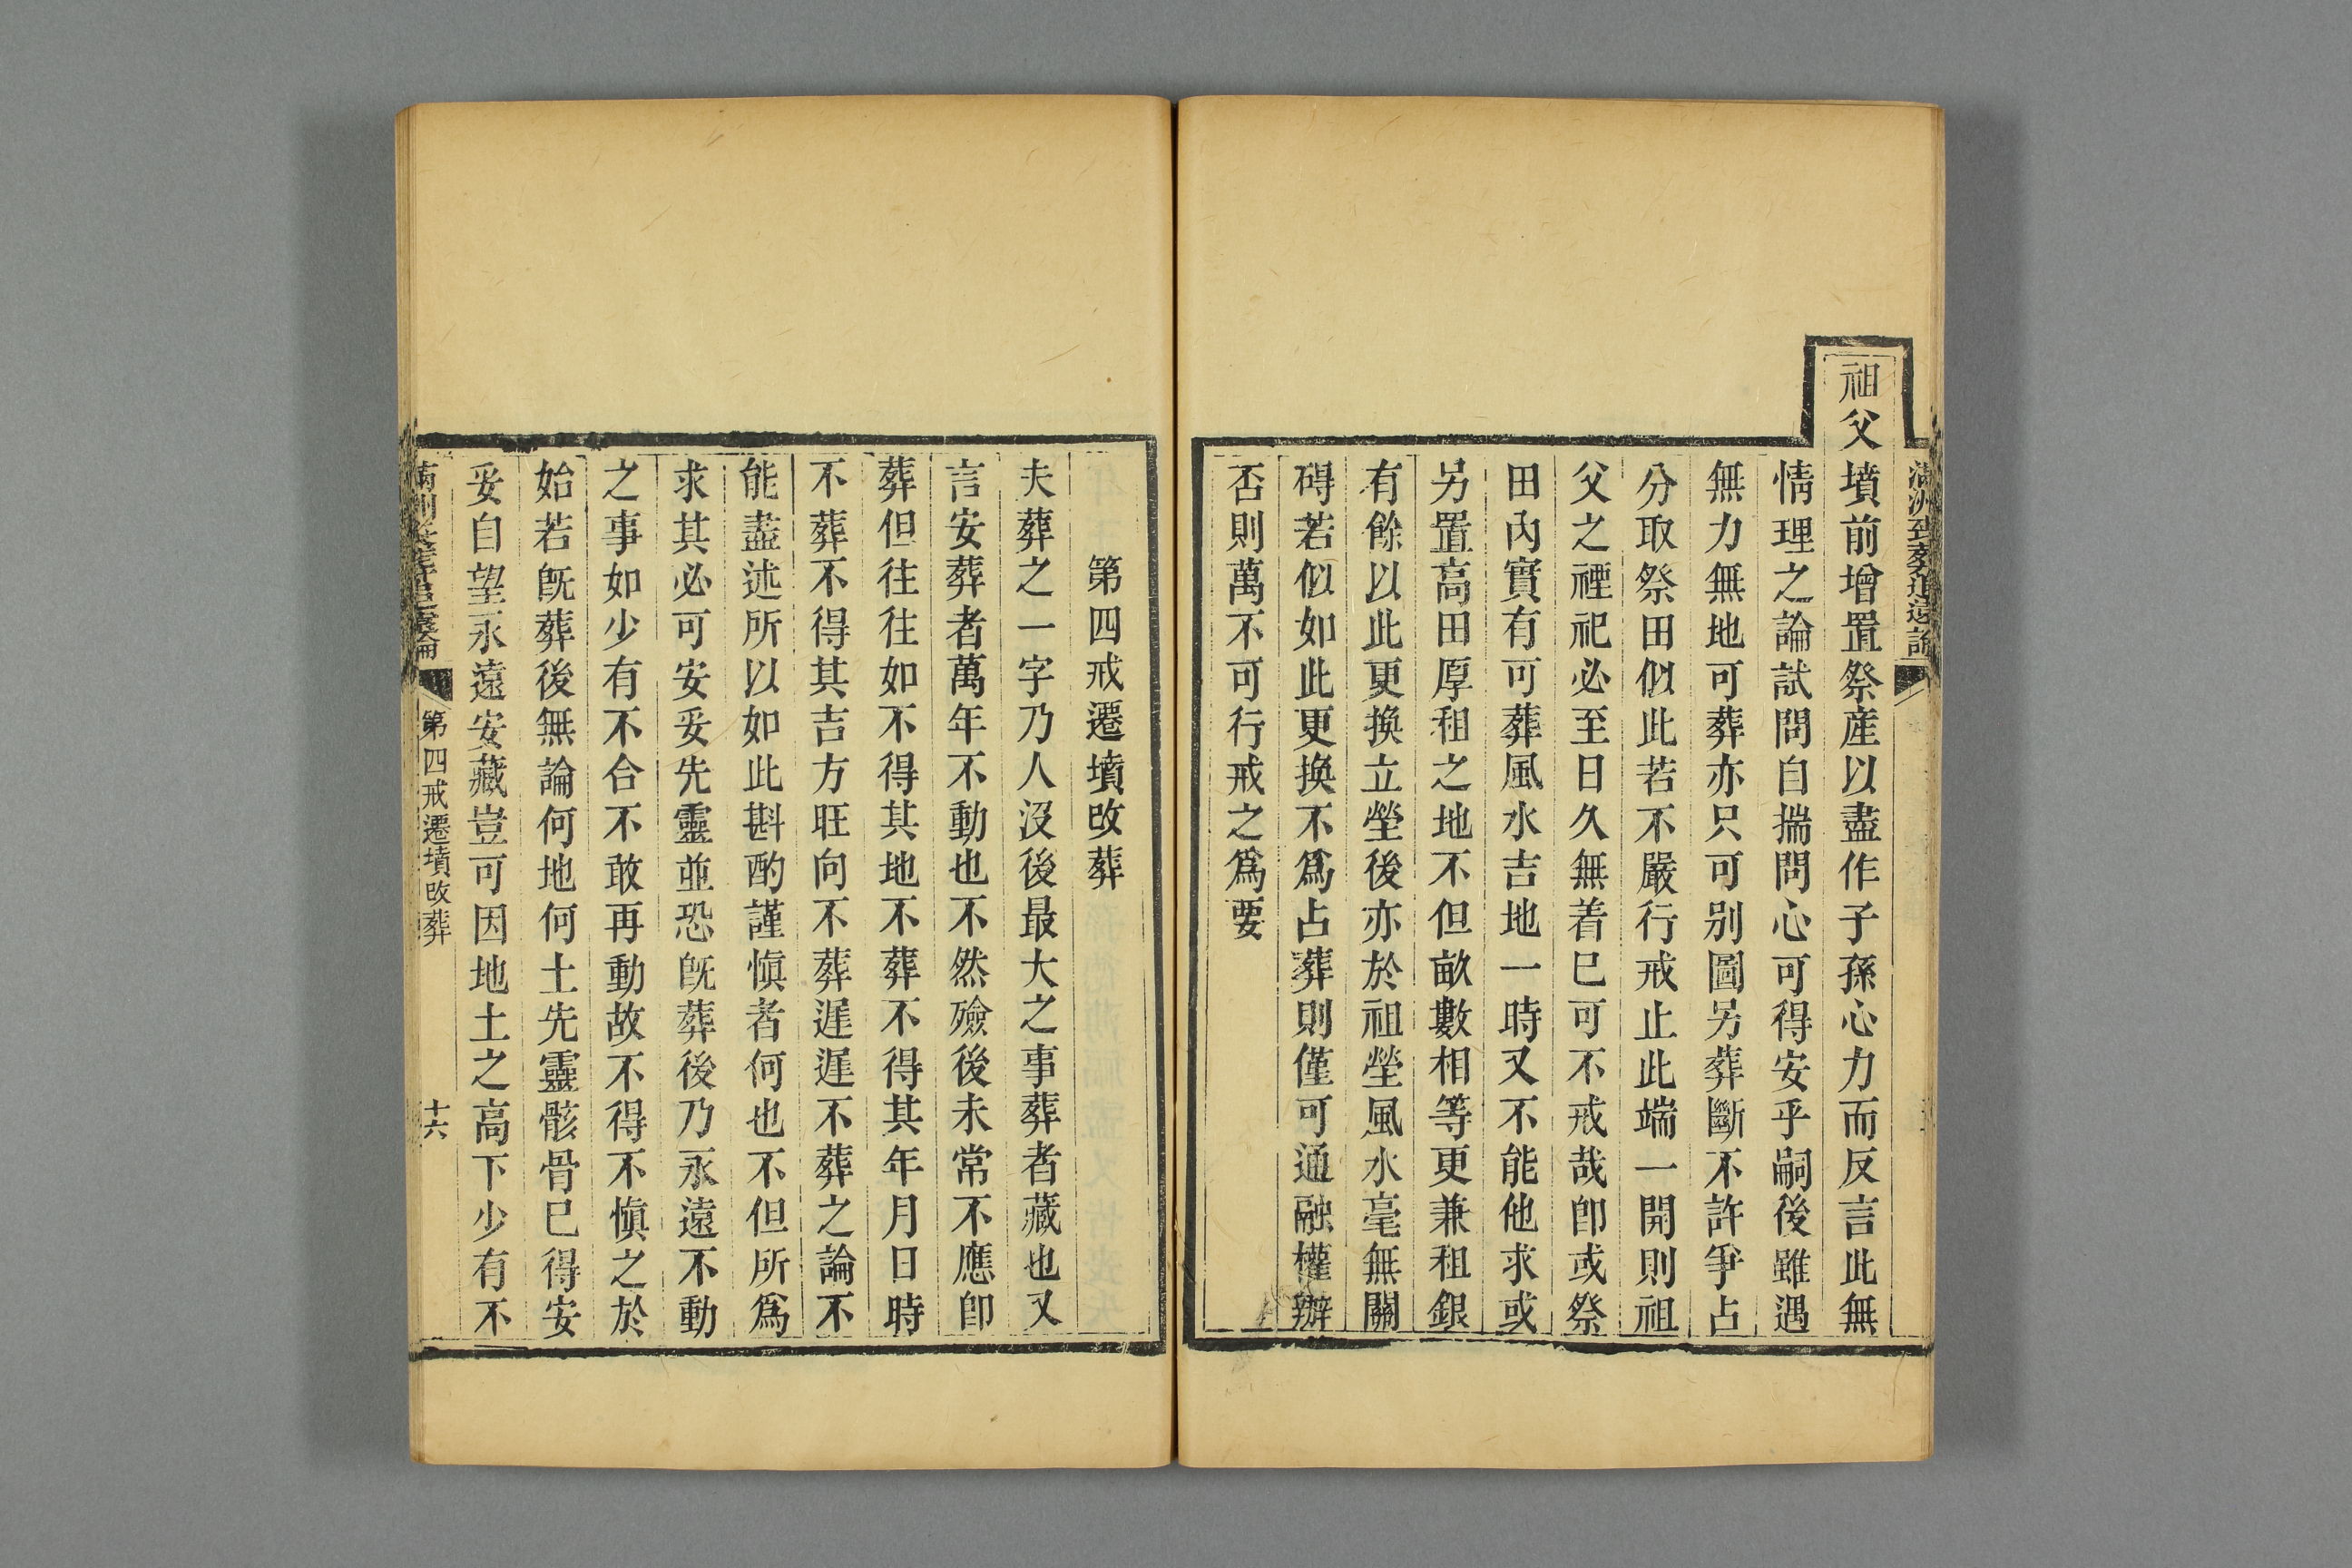 祖父墳前增置祭産以盡作子孫心力而反言此無
情理之論試問自揣問心可得安乎嗣後雖遇
無力無地可葬亦只可别圖另葬斷不許爭占
分取祭田似此若不嚴行戒止此端一開則祖
父之禋祀必至日久無着巳可不戒哉卽或祭
田內實有可葬風水吉地一時又不能他求或
另置高田厚租之地不但畝數相等更兼租銀
有餘以此更換立塋後亦於祖塋風水毫無關
碍若似如此更換不爲占葬則僅可通融權辦
否則萬不可行戒之爲要
第四戒遷墳攺葬
夫葬之一字乃人沒後最大之事葬者藏也又
言安葬者萬年不動也不然殮後未常不應卽
葬但往往如不得其地不葬不得其年月日時
不葬不得其吉方旺向不葬遲遲不葬之論不
能盡述所以如此斟酌謹愼者何也不但所爲
求其必可安妥先靈並恐旣葬後乃永遠不動
之事如少有不合不敢再動故不得不愼之於
始若旣葬後無論何地何土先靈骸骨巳得安
妥自望永遠安藏豈可因地土之高下少有不
第四戒遷墳攺葬
十六